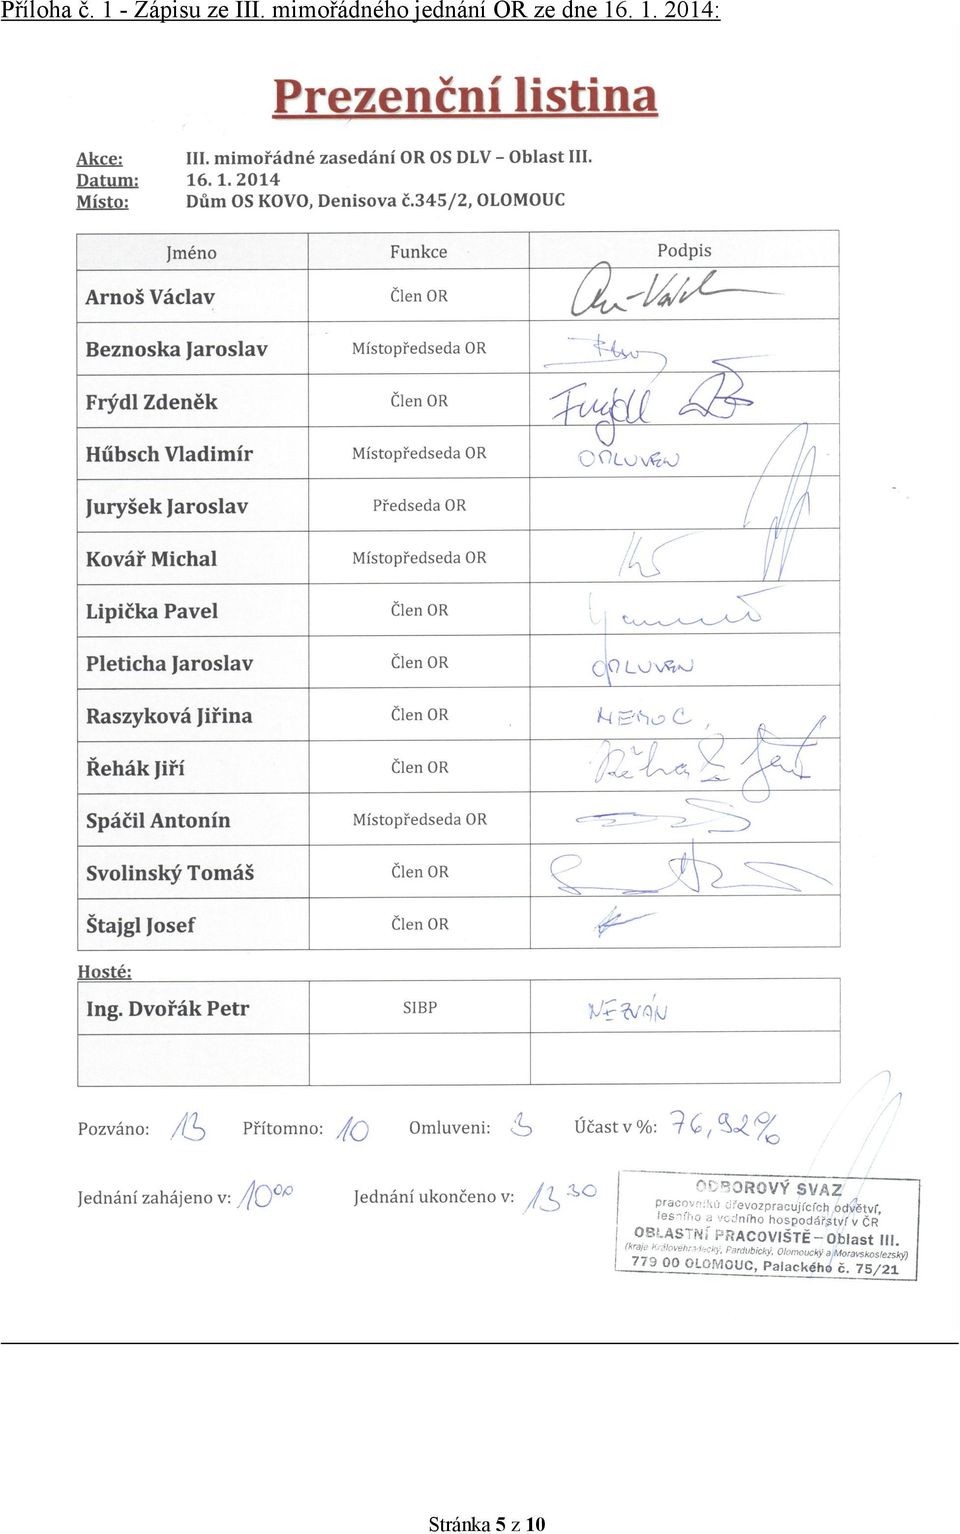 Příloha č. 1 - Zápisu ze III. mimořádného jednání OR ze dne 16. 1. 2014:
Prezenční listina
Akce: III. mimořádné zasedání OR OS DLV – Oblast III.
Datum: 16. 1. 2014
Místo: Dům OS KOVO, Denisova č.345/2, OLOMOUC
Jméno Funkce Podpis
Arnoš Václav Člen OR
Beznoska Jaroslav Místopředseda OR
Frýdl Zdeněk Člen OR Frýdl
Hűbsch Vladimír Místopředseda OR OMLUVEN
Juryšek Jaroslav Předseda OR
Kovář Michal Místopředseda OR
Lipička Pavel Člen OR
Pleticha Jaroslav Člen OR OMLUVEN
Raszyková Jiřina Člen OR NEMOC
Řehák Jiří Člen OR Řehák
Spáčil Antonín Místopředseda OR
Svolinský Tomáš Člen OR
Štajgl Josef Člen OR
Hosté:
Ing. Dvořák Petr SIBP NEZVÁN
Pozváno: 13 Přítomno: 10 Omluveni: 3 Účast v %: 76,92%
Jednání zahájeno v: 10 00 Jednání ukončeno v: 13 30
ODBOROVÝ SVAZ
pracovníků dřevozpracujících odvětví,
lesního a vodního hospodářství v ČR
OBLASTNÍ PRACOVIŠTĚ – Oblast III.
(kraje Královehradecký, Pardubický, Olomoucký a Moravskoslezský)
779 00 OLOMOUC, Palackého č. 75/21
Stránka 5 z 10